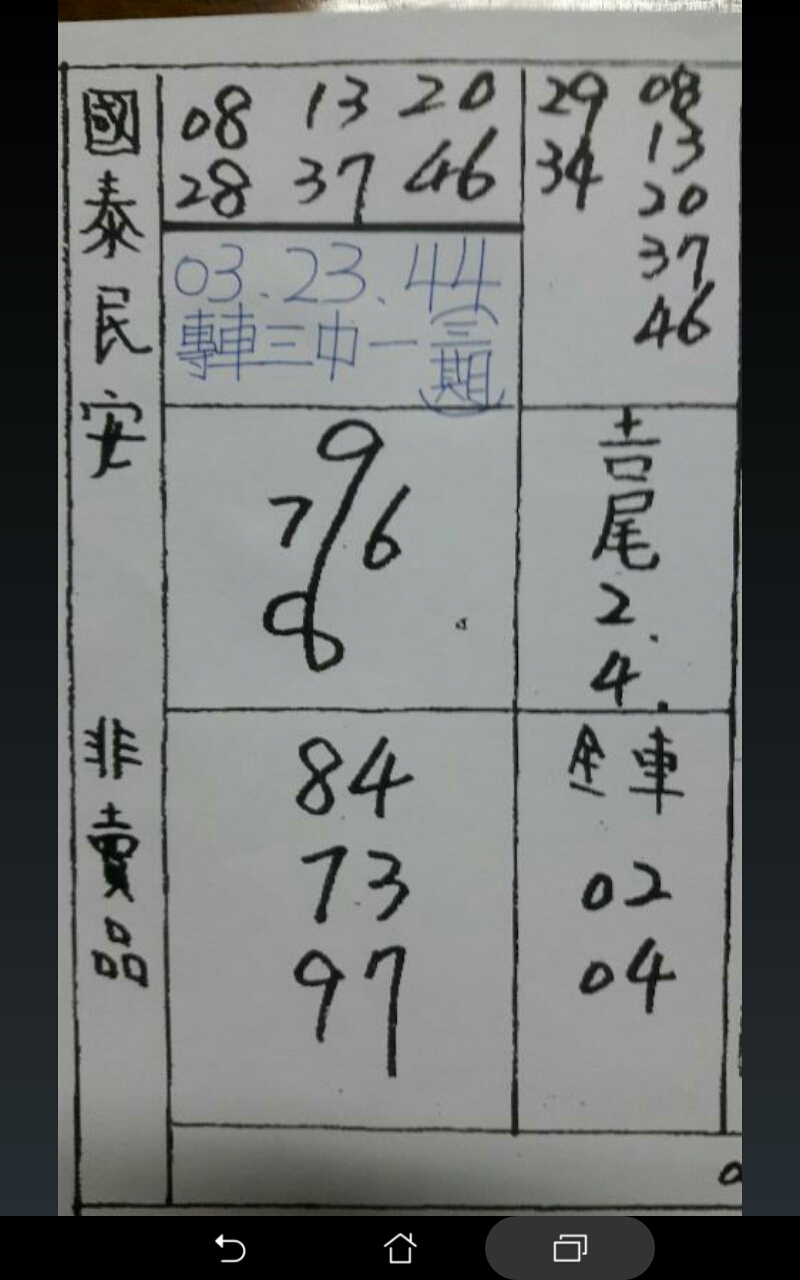 國泰民安 非賣品
08 13 20
28 37 46
03.23.44
專車三中一(三期)
9
7 6
8
84
73
97
29 08
34 13
20
37
46
吉尾
2.
4.
全車
02
04